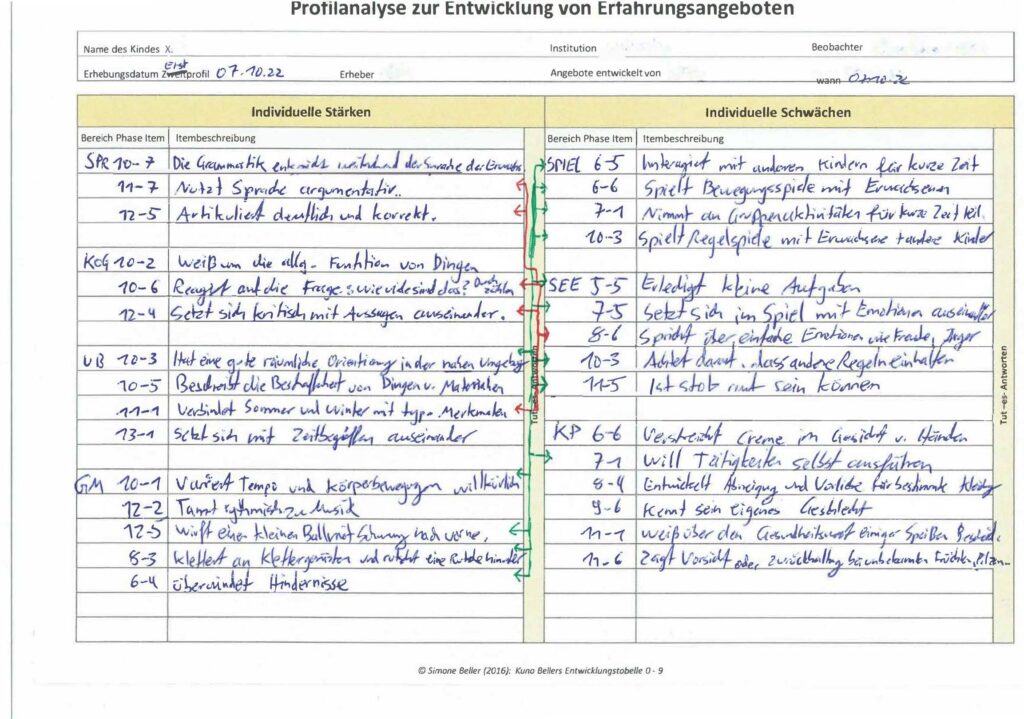 Profilanalyse zur Entwicklung von Erfahrungsangeboten
Name des Kindes X.
Institution
Beobachter
Erst
Erhebungsdatum Zweitprofil 07.10.22
Erheber
Angebote entwickelt von
wann 07.10.22
Individuelle Stärken
Individuelle Schwächen
Bereich Phase Item Itembeschreibung
Bereich Phase Item Itembeschreibung
SPR 10-7 Die Grammatik entspricht weitgehend der Sprache der
11-7 Nutzt Sprache argumentativ.
12-5 Artikuliert deutlich und korrekt.
KOG 10-2 Weiß um die allg. Funktion von Dingen
10-6 Reagiert auf die Frage: wie viele sind das? Durch zählen
12-4 Setzt sich kritisch mit Aussagen auseinander.
UB 10-3 Hat eine gute räumliche Orientierung in der nahen Umgebung
10-5 Beschreibt die Beschaffenheit von Dingen u. Materialien
11-1 Verbindet Sommer und Winter mit typ. Merkmalen
13-1 Setzt sich mit Zeitbegriffen auseinander
GM 10-1 Variiert Tempo und Körperbewegungen willkürlich
12-2 Tanzt rythmisch zu Musik
12-5 Wirft einen kleinen Ball mit Schwung nach vorne.
8-3 Klettert an Klettergerüsten und rutscht eine Rutsche hinunter
6-4 überwindet Hindernisse
Tut-es-Antworten
SPIEL 6-5 Interagiert mit anderen Kindern für kurze Zeit
6-6 Spielt Bewegungsspiele mit Erwachsenen
7-1 Nimmt an Gruppenaktivitäten für kurze Zeit teil.
10-3 Spielt Regelspiele mit Erwachsene + andere Kinder
SEE 5-5 Erledigt kleine Aufgaben
7-5 Setzt sich im Spiel mit Emotionen auseinander
8-6 Spricht über einfache Emotionen wie Freude,
10-3 Achtet darauf, dass andere Regeln einhalten
11-5 Ist stolz auf sein können
KP 6-6 Verstreicht Creme im Gesicht u. Händen
7-1 Will Tätigkeiten selbst ausführen
8-4 Entwickelt Abneigung und Vorliebe für bestimmte Kleidung
9-6 Kennt sein eigenes Geschlecht
11-1 weiß über den Gesundheitswert einiger Speißen Bescheid.
11-6 Zeigt Vorsicht oder Zurückhaltung bei unbekannten Früchten, Pilzen
Tut-es-Antworten
© Simone Beller (2016): Kuno Bellers Entwicklungstabelle 0 - 9